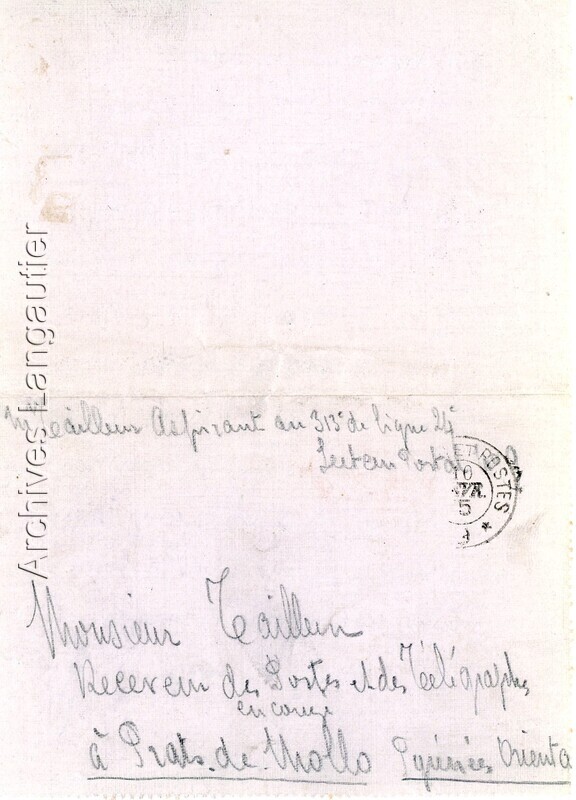 Mr Tailleur Aspirant au 313e de ligne 24e
Secteur Postal
ET POSTES
10
AVR.
5
Monsieur Tailleur
Receveur des Postes et des Télégraphes
en congé
à Prats-de-Mollo Pyrénées Orienta
Archives Langautier